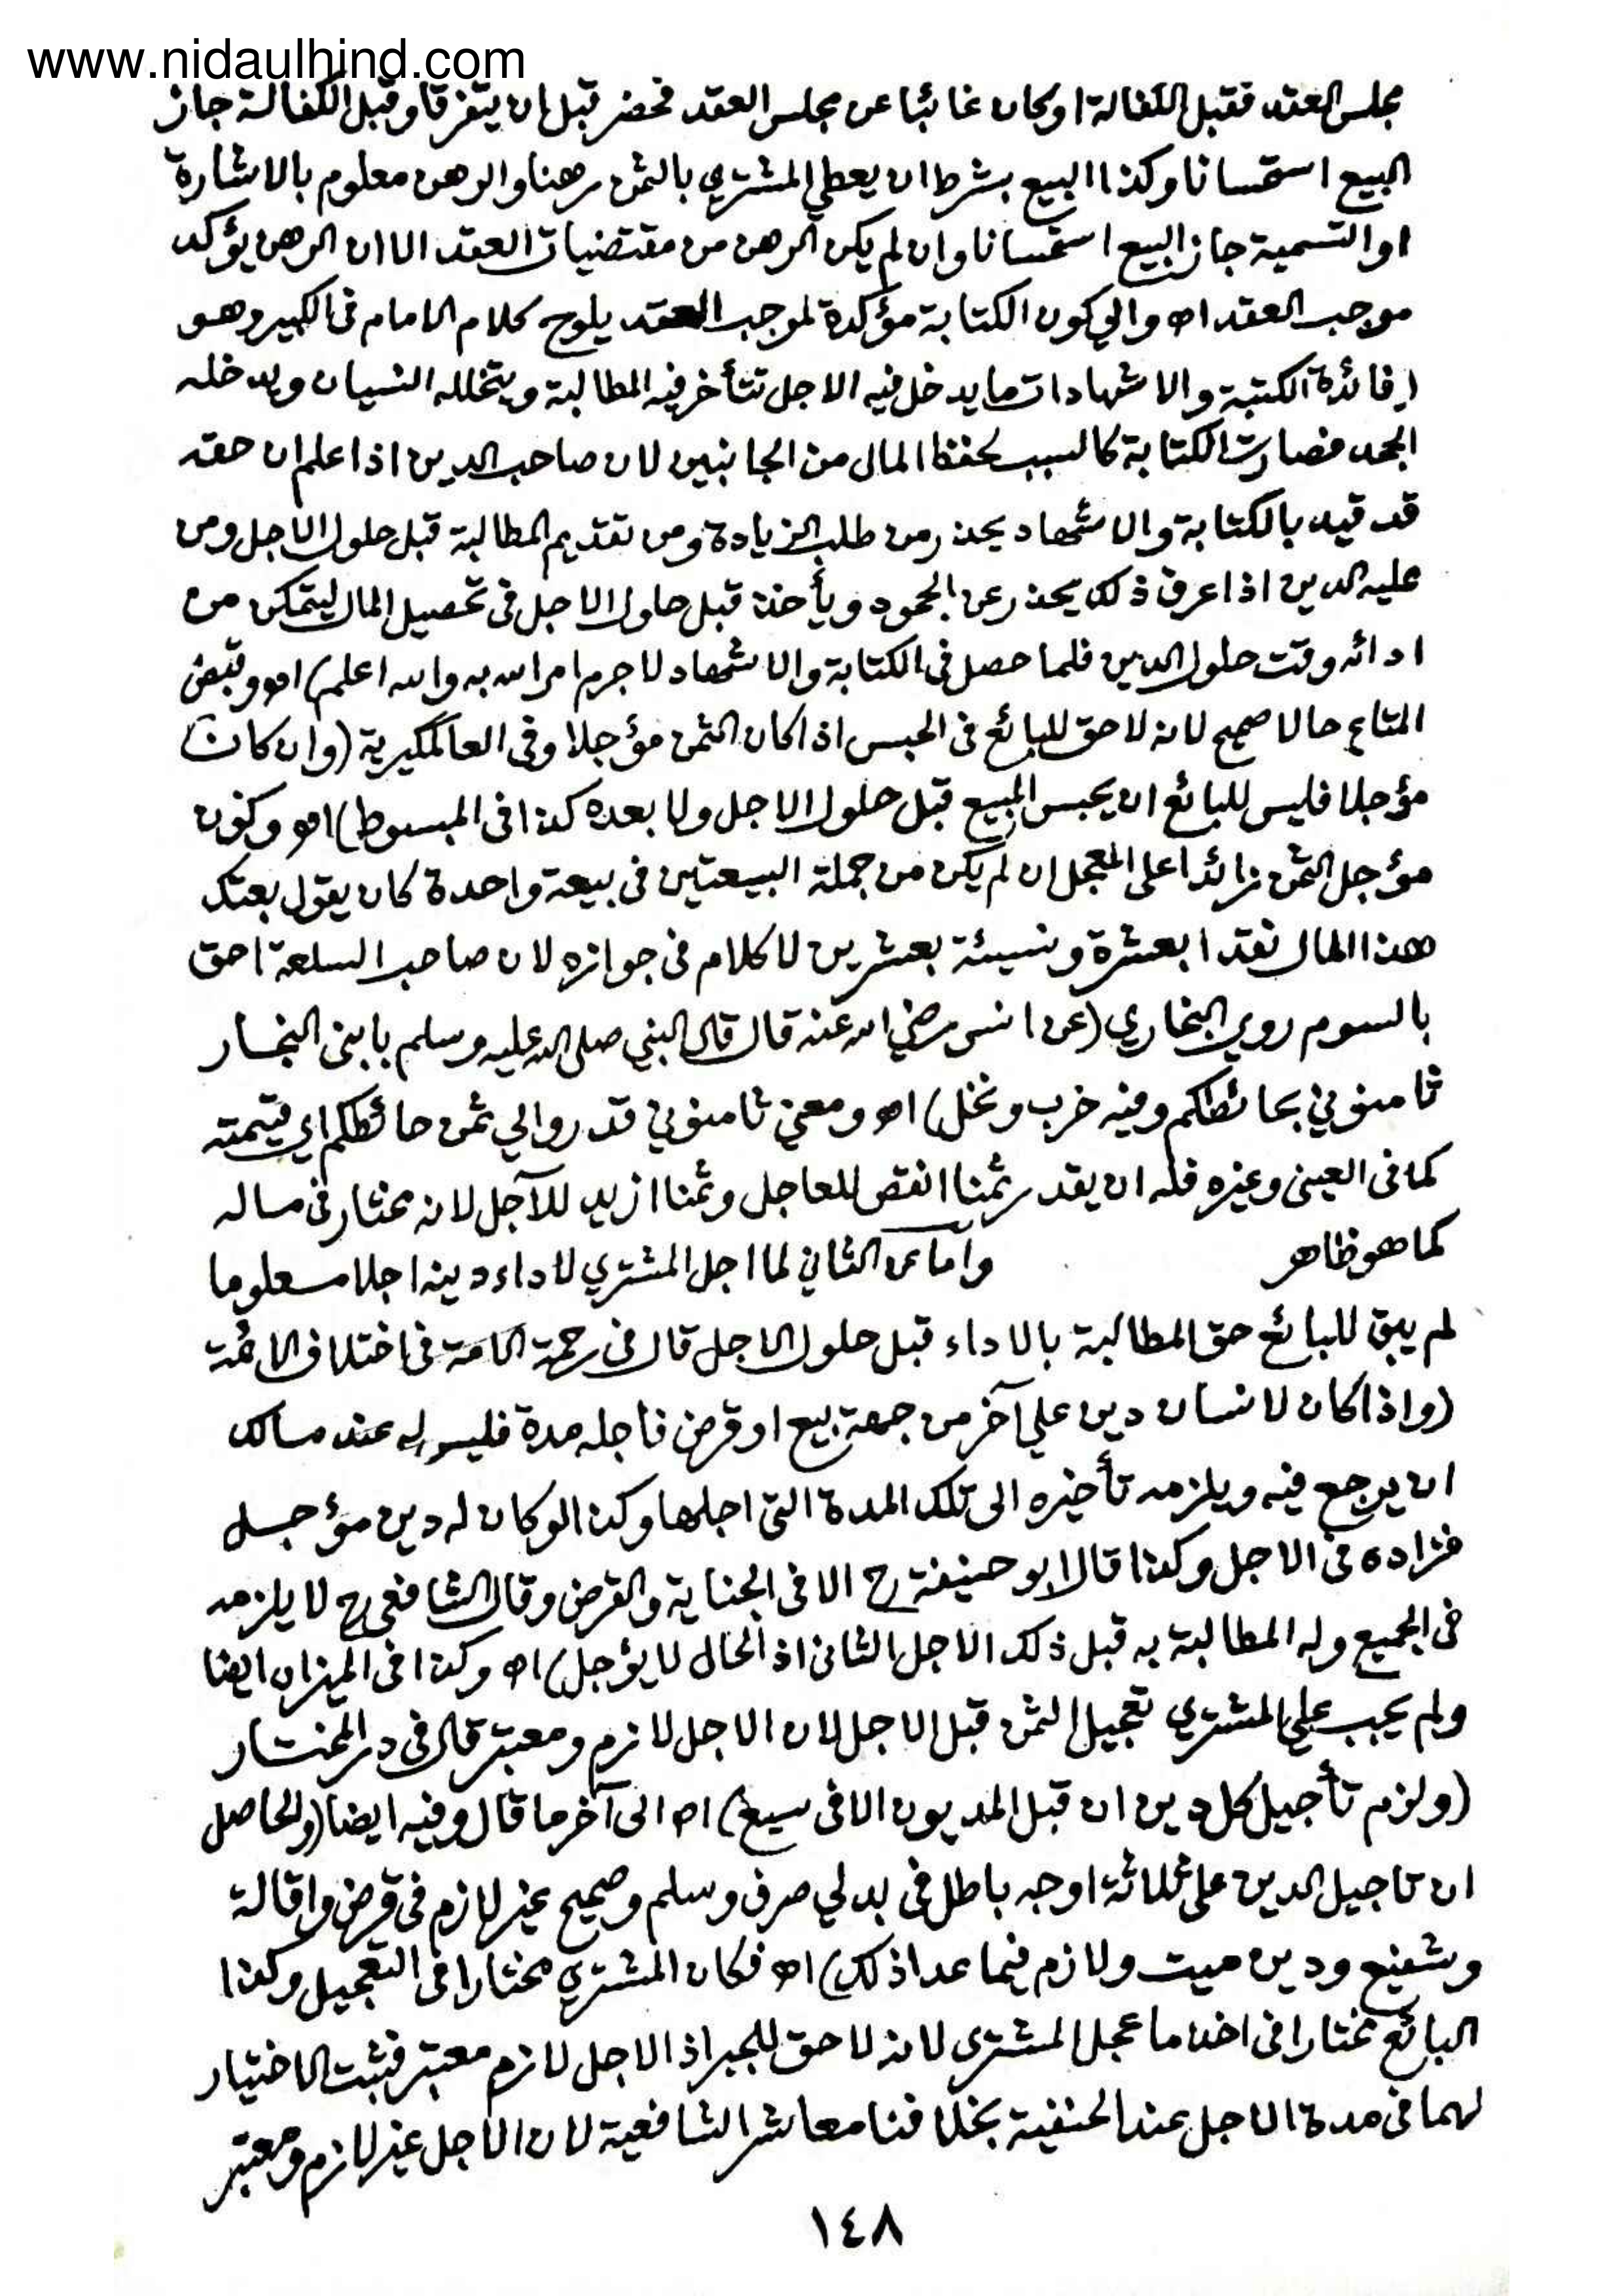 www.nidaulhind.com
مجلس العقد فقبل الكفالة او كان غائبا عن مجلس العقد فحضر قبل ان يتفرقا وقبل الكفالة جاز
البيع استحسانا وكذا البيع بشرط ان يعطي المشتري بالثمن رهنا والرهن معلوم بالاشارة
او التسمية جاز البيع استحسانا وان لم يكن الرهن من مقتضيات العقد الا ان الرهن يؤكد
موجب العقد اه والي كون الكتابة مؤكدة لموجب العقد يلوح كلام الامام في الكبير وهو
(فائدة الكتبة والاشهادات ما يدخل فيه الاجل تتأخر فيه المطالبة ويتخلله النسيان ويدخله
الجحد فصارت الكتابة كالسبب لحفظ المال من الجانبين لان صاحب الدين اذا علم ان حقه
قد قيد بالكتابة والاشهاد يحذر من طلب الزيادة ومن تقديم المطالبة قبل حلول الاجل ومن
عليه الدين اذا عرف ذلك يحذر عن الجحود ويأخذ قبل حلول الاجل في تحصيل المال ليتمكن من
ادائه وقت حلول الدين فلما حصل في الكتابة والاشهاد لا جرم امر الله به والله اعلم) اه وقبض
المتاع حالا صحيح لانه لا حق للبائع في الحبس اذا كان الثمن مؤجلا وفي العالمكيرية (وان كان
مؤجلا فليس للبائع ان يحبس المبيع قبل حلول الاجل ولا بعده كذا في المبسوط) اه وكون
مؤجل الثمن زائدا على المعجل ان لم يكن من جملة البيعتين في بيعة واحدة كان يقول بعتك
هذا المال نقدا بعشرة ونسيئة بعشرين لا كلام في جوازه لان صاحب السلعة احق
بالسوم روي البخاري (عن انس رضي الله عنه قال قال النبي صلى الله عليه وسلم يا بني النجار
ثامنوني بحائطكم وفيه خرب ونخل) اه ومعني ثامنوني قدروا لي ثمن حائطكم اي قيمته
كما في العيني وغيره فله ان يقدر ثمنا انقص للعاجل وثمنا ازيد للآجل لانه مختار في ماله
كما هو ظاهر وأما عن الثاني لما اجل المشتري لاداء دينه اجلا معلوما
لم يبق للبائع حق المطالبة بالاداء قبل حلول الاجل قال في رحمة الامة في اختلاف الائمة
(واذا كان لانسان دين علي آخر من جهة بيع او قرض فاجله مدة فليس له عند مالك
ان يرجع فيه ويلزمه تأخيره الى تلك المدة التي اجلها وكذا لو كان له دين مؤجل
فزاده في الاجل وكذا قال ابو حنيفة رح الا في الجناية والقرض وقال الشافعي رح لا يلزمه
في الجميع وله المطالبة به قبل ذلك الاجل الثاني اذ الحال لا يؤجل) اه وكذا في الميزان ايضا
ولم يجب علي المشتري تعجيل الثمن قبل الاجل لان الاجل لازم ومعتبر قال في در المختار
(ولزم تأجيل كل دين ان قبل المديون الا في سبع) اه الى آخر ما قال وفيه ايضا (والحاصل
ان تاجيل الدين على ثلاثة اوجه باطل في بدلي صرف وسلم وصحيح غير لازم في قرض واقالة
وشفيع ودين ميت ولازم فيما عدا ذلك) اه فكان المشتري مختارا في التعجيل وكذا
البائع مختارا في اخذ ما عجل المشترى لانه لا حق للجبر اذ الاجل لازم معتبر فثبت الاختيار
لهما في مدة الاجل عند الحنفية بخلافنا معاشر الشافعية لان الاجل غير لازم ومعتبر
١٤٨